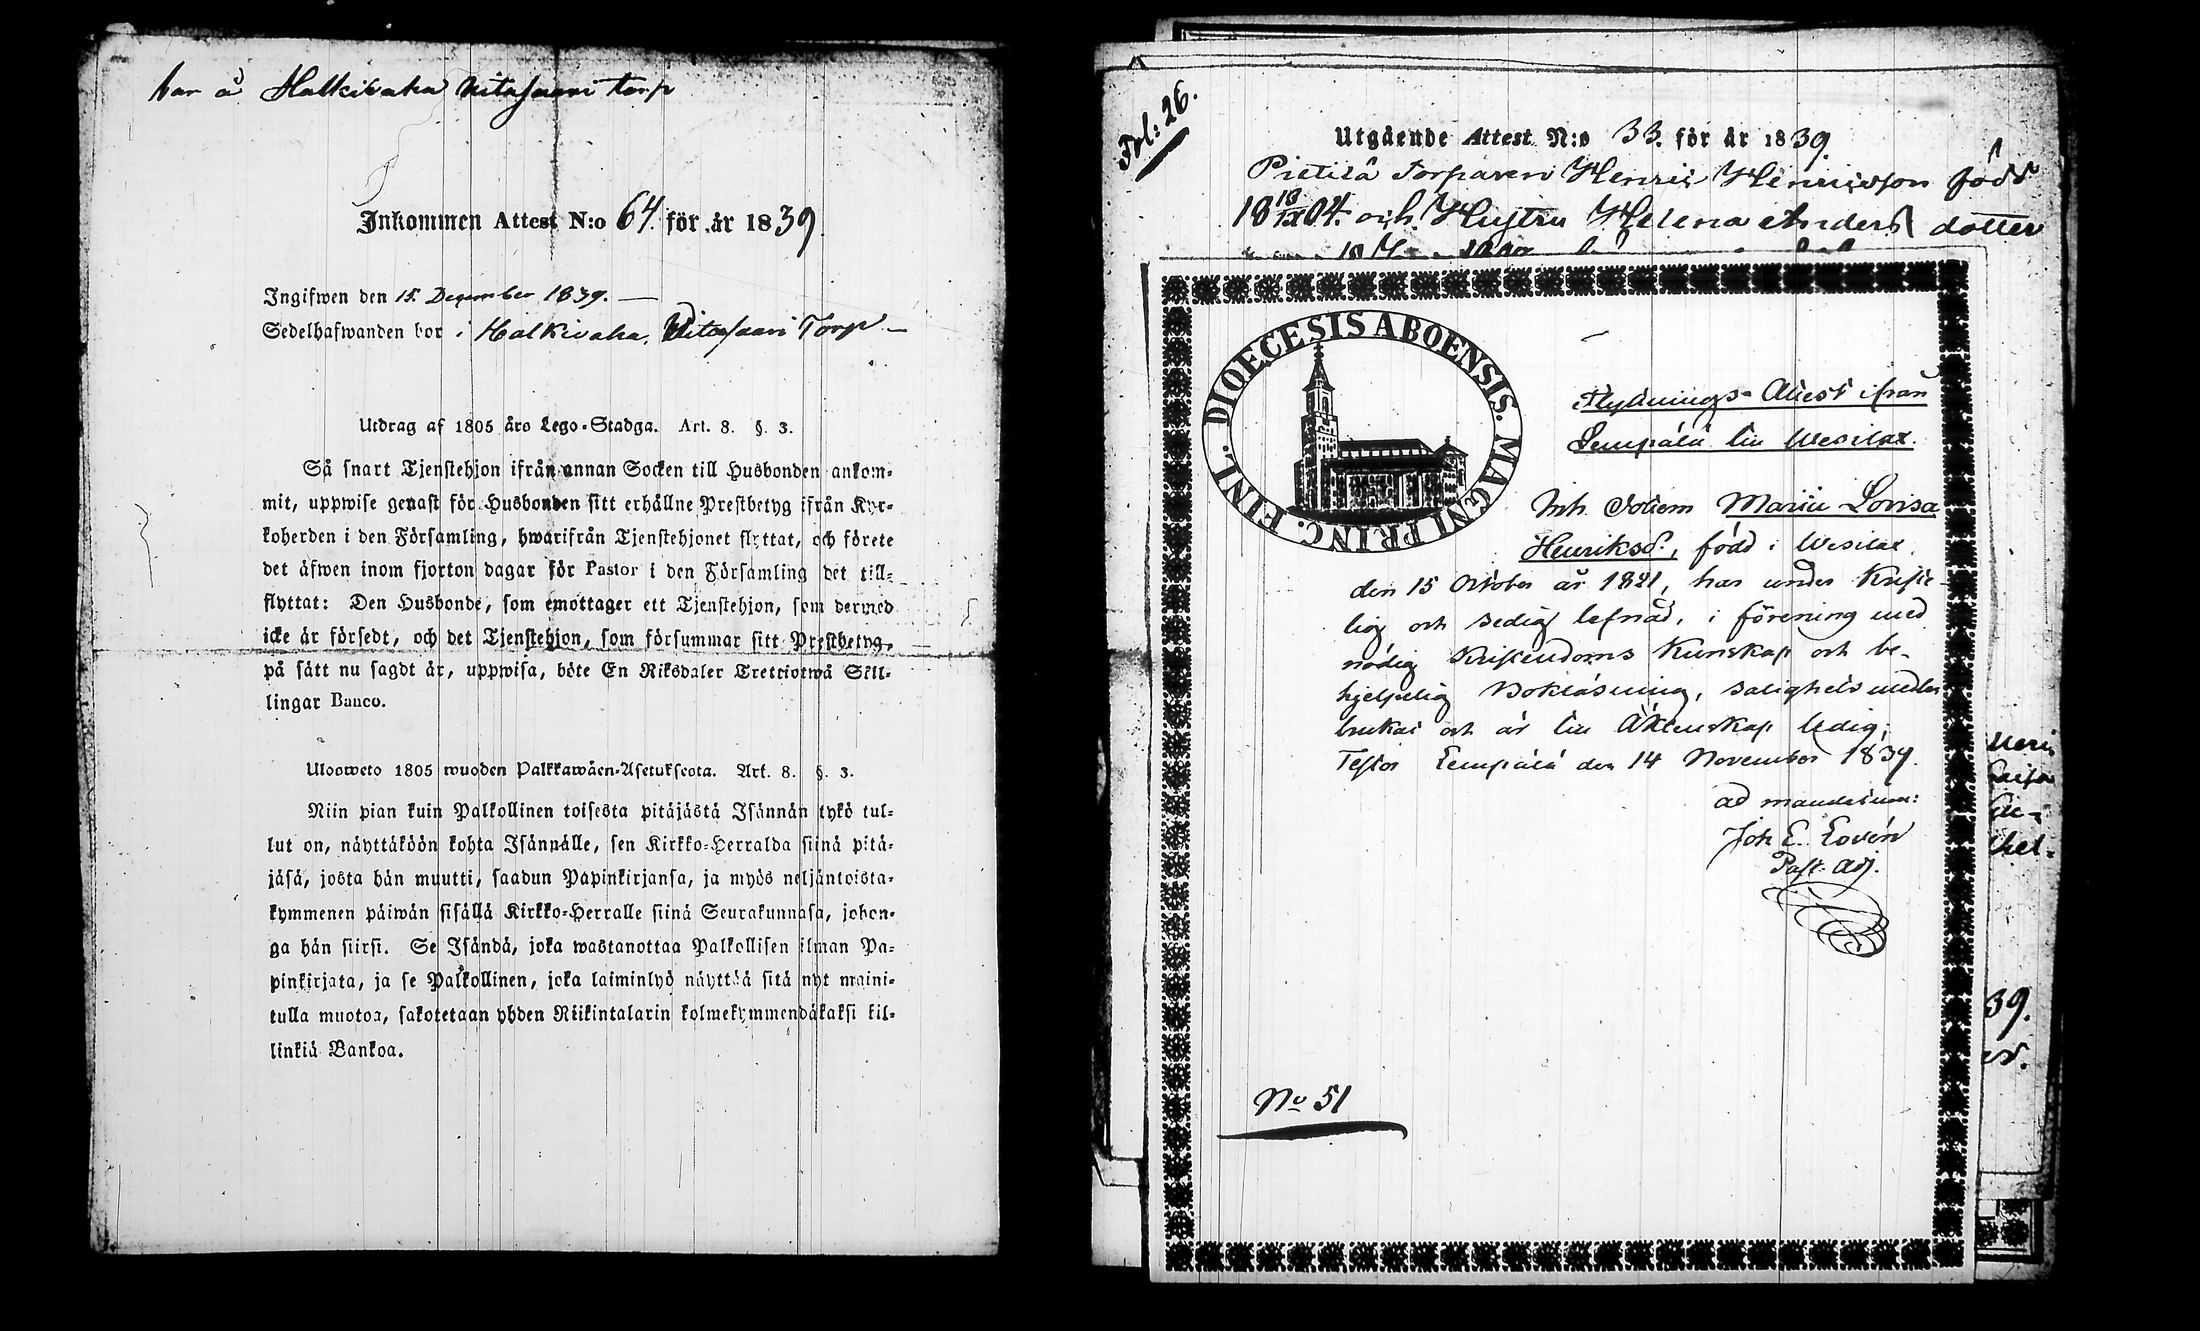 bor å Halkivaha Uitasaari torp
Inkommen Attest N:o 64. för år 1839.
Ingifwen den 15. December 1839. —
Sedelhafwanden bor i Halkivaha, Uitasaari Torp —
Utdrag af 1805 års Lego-Stadga. Art. 8. §. 3.
Så snart Tjenstehjon ifrån annan Socken till Husbonden ankom-
mit, uppwise genast för Husbonden sitt erhållne Prestbetyg ifrån Kyr-
koherden i den Församling, hwarifrån Tjenstehjonet flyttat, och förete
det äfwen inom fjorton dagar för Pastor i den Församling det till-
flyttat: Den Husbonde, som emottager ett Tjenstehjon, som dermed
icke är försedt, och det Tjenstehjon, som försummar sitt Prestbetyg,
på sätt nu sagdt är, uppwisa, böte En Riksdaler Trettiotwå Skil-
lingar Banco.
Ulosweto 1805 wuoden Palkkawäen-Asetuksesta. Art. 8. §. 3.
Niin pian kuin Palkollinen toisesta pitäjästä Isännän tykö tul-
lut on, näyttäköön kohta Isännälle, sen Kirkko-Herralda siinä pitä-
jäsä, josta hän muutti, saadun Papinkirjansa, ja myös neljäntoista-
kymmenen päiwän sisällä Kirkko-Herralle siinä Seurakunnasa, johon-
ga hän siirsi. Se Isändä, joka wastanottaa Palkollisen ilman Pa-
pinkirjata, ja se Palkollinen, joka laiminlyö näyttää sitä nyt maini-
tulla muotoa, sakotetaan yhden Riikintalarin kolmekymmendäkaksi kil-
linkiä Bankoa.
Fol: 26.
Utgående Attest N:o 33. för år 1839.
Pietilä Torparen Henric Henricsson född
18 18/IX 04. och Hustru Helena Anders dotter
DIOECESIS ABOENSIS. MAGNI PRINC. FINL.
Flyttnings-Attest ifrån
Lempälä till Wesilax.
Inh. Jotiem Maria Lovisa
Henriksd., född i Wesilax
den 15 October år 1821, har under Kriste-
lig och sedig lefnad, i förening med
nödig Kristendoms Kunskap och be-
hjelpelig Bokläsning, salighets medlen
brukat och är till Äktenskap ledig;
Testor Lempälä den 14 November 1839.
ad mandatum:
Joh E. Lovén
Past. Adj.
No 51
39.